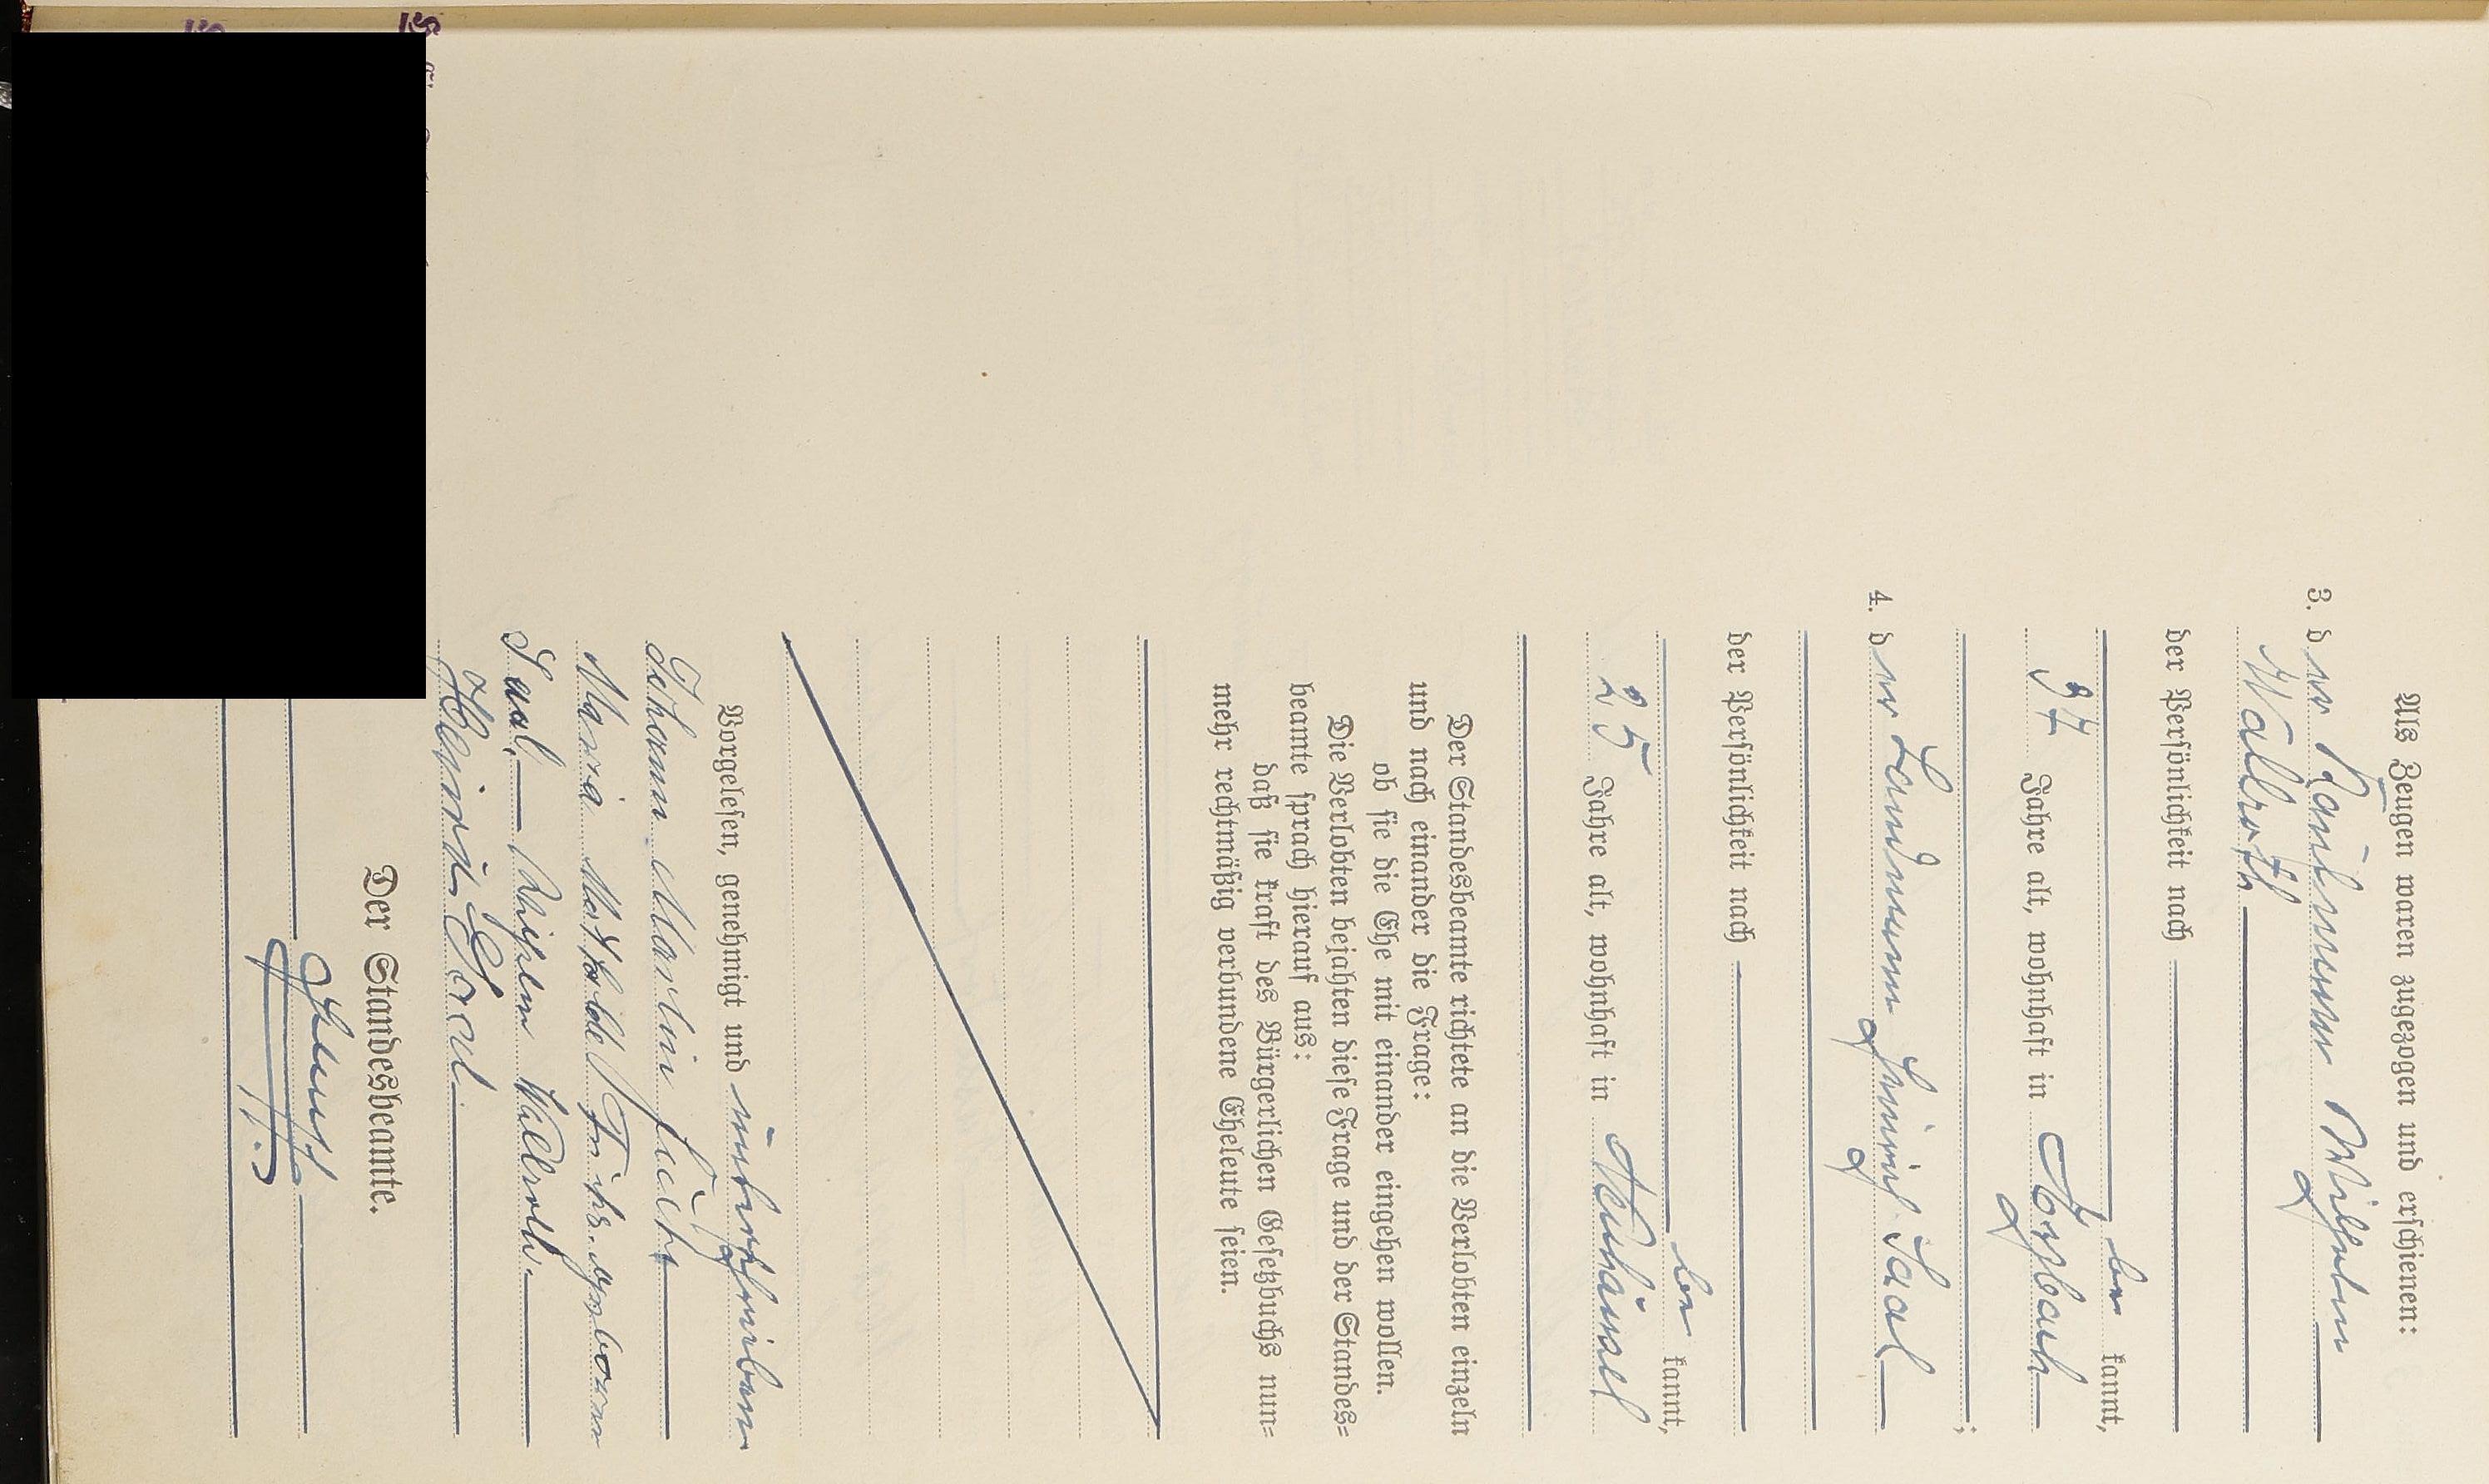 Als Zeugen waren zugezogen und erschienen:
3. der Kaufmann Wilhelm
Wallroth
der Persönlichkeit nach
be kannt,
37 Jahre alt, wohnhaft in
4. der Landmann Heinrich Saal
;
der Persönlichkeit nach
be kannt,
25 Jahre alt, wohnhaft in Neuhäusel
Der Standesbeamte richtete an die Verlobten einzeln
und nach einander die Frage:
ob sie die Ehe mit einander eingehen wollen.
Die Verlobten bejahten diese Frage und der Standes=
beamte sprach hierauf aus:
daß sie kraft des Bürgerlichen Gesetzbuchs nun=
mehr rechtmäßig verbundene Eheleute seien.
Vorgelesen, genehmigt und unterschrieben
Johann Martin
Maria geborene
Saal. Wilhelm Wallroth.
Heinrich Saal.
Der Standesbeamte.